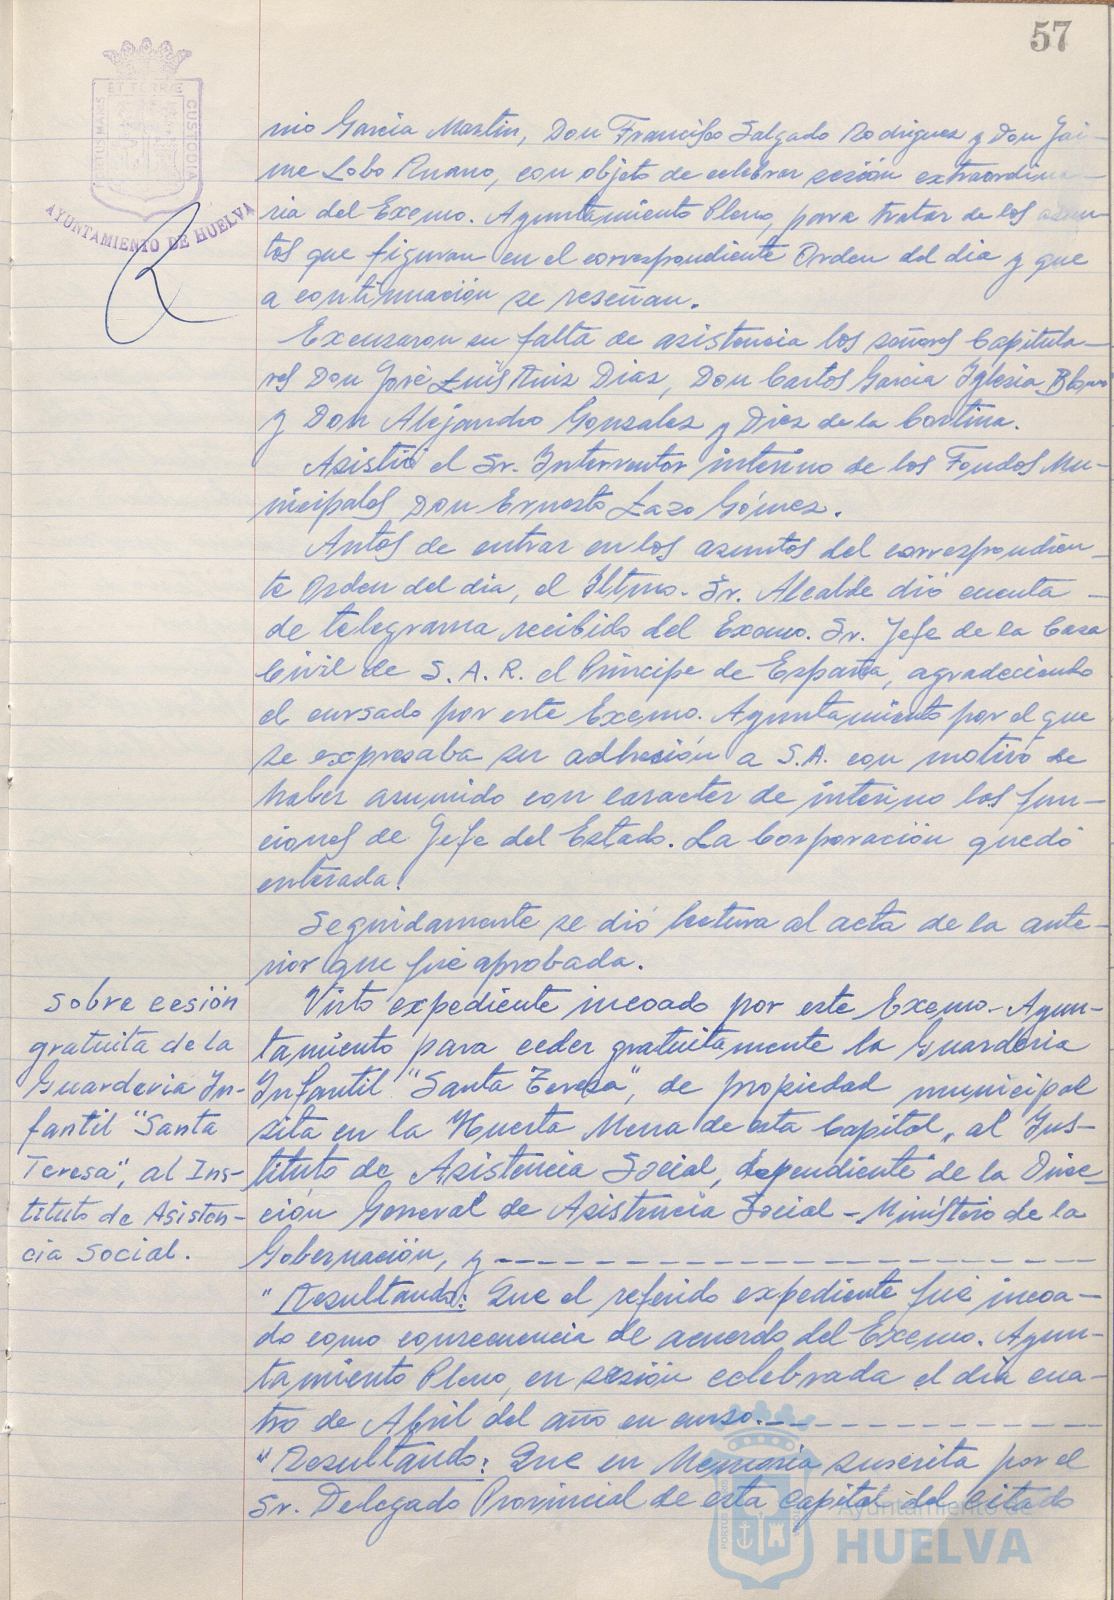 57
PORTUS MARIS
ET TERRÆ
CUSTODIA
AYUNTAMIENTO DE HUELVA
nio Garcia Martin, Don Francisco Salgado Rodriguez y Don Jai-
me Lobo Ruano, con objeto de celebrar sesión extraordina-
ria del Excmo. Ayuntamiento Pleno, para tratar de los asun-
tos que figuran en el correspondiente Orden del dia y que
a continuación se reseñan.
Excusaron su falta de asistencia los señores Capitula-
res Don José Luis Ruiz Diaz, Don Carlos Garcia Iglesia Blanco
y Don Alejandro Gonzalez y Diez de la Cortina.
Asistió el Sr. Interventor interino de los Fondos Mu-
nicipales Don Ernesto Lazo Gómez.
Antes de entrar en los asuntos del correspondien-
te Orden del dia, el Iltmo. Sr. Alcalde dió cuenta -
de telegrama recibido del Excmo. Sr. Jefe de la Casa
Civil de S. A. R. el Príncipe de España, agradeciendo
el cursado por este Excmo. Ayuntamiento por el que
se expresaba su adhesión a S.A. con motivo de
haber asumido con caracter de interino las fun-
ciones de Jefe del Estado. La Corporación quedó
enterada.
Seguidamente se dió lectura al acta de la ante-
rior que fué aprobada.
Sobre cesión
gratuita de la
Guarderia In-
fantil "Santa
Teresa", al Ins-
tituto de Asisten-
cia Social.
Visto expediente incoado por este Excmo. Ayun-
tamiento para ceder gratuitamente la Guarderia
Infantil "Santa Teresa", de propiedad municipal
sita en la Huerta Mena de esta Capital, al Ins-
tituto de Asistencia Social, dependiente de la Direc-
ción General de Asistencia Social - Ministerio de la
Gobernación, y ----------
"Resultando: Que el referido expediente fué incoa-
do como consecuencia de acuerdo del Excmo. Ayun-
tamiento Pleno, en sesión celebrada el dia cua-
tro de Abril del año en curso. --------
"Resultando: Que en Memoria suscrita por el
Sr. Delegado Provincial de esta Capital del citado
Ayuntamiento de
HUELVA